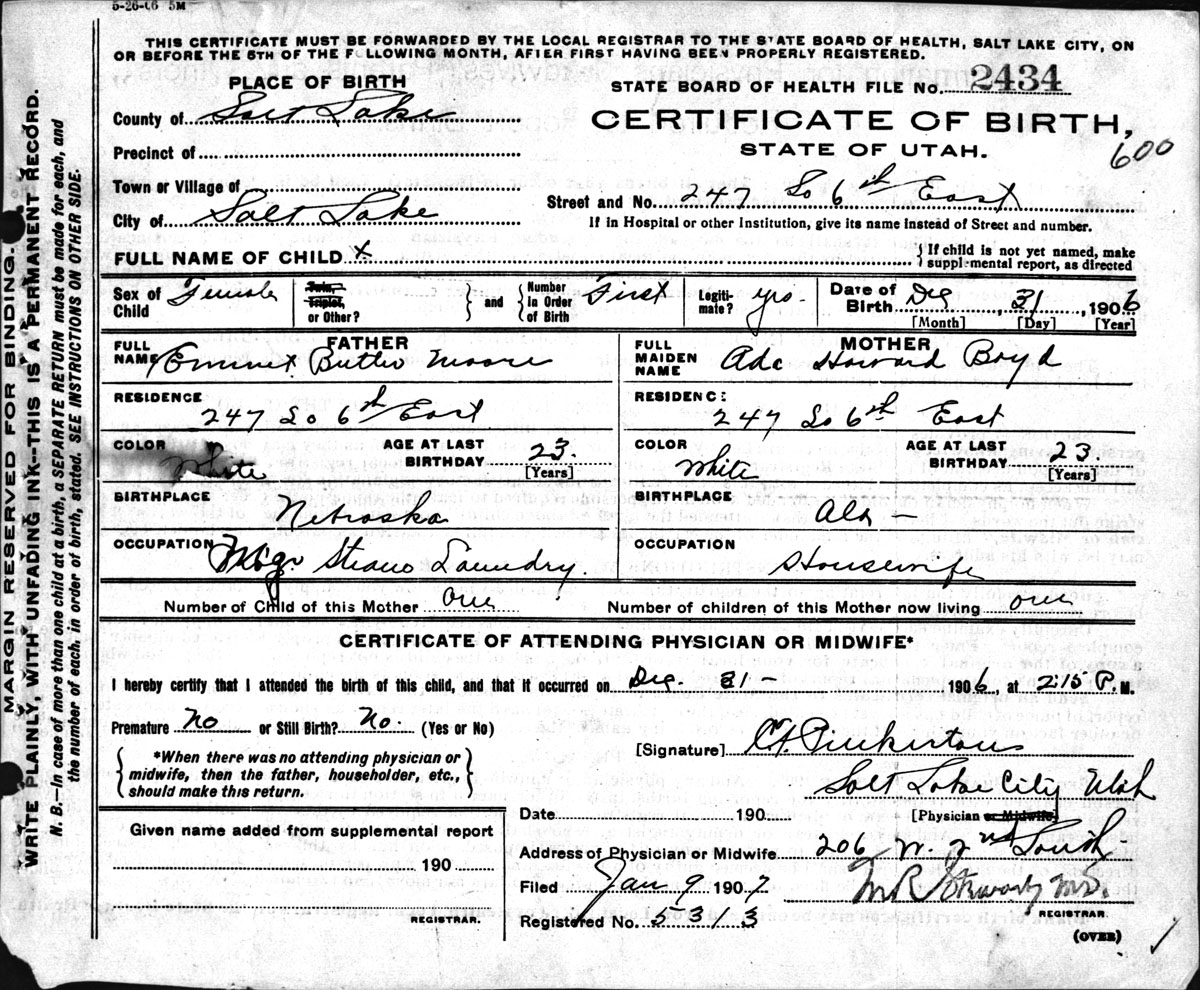 5-26-06 5M
THIS CERTIFICATE MUST BE FORWARDED BY THE LOCAL REGISTRAR TO THE STATE BOARD OF HEALTH, SALT LAKE CITY, ON
OR BEFORE THE 5TH OF THE FOLLOWING MONTH, AFTER FIRST HAVING BEEN PROPERLY REGISTERED.
PLACE OF BIRTH
STATE BOARD OF HEALTH FILE No. 2434
County of Salt Lake
CERTIFICATE OF BIRTH,
600
Precinct of
STATE OF UTAH.
Town or Village of
Street and No. 247 So 6th East
City of Salt Lake
If in Hospital or other Institution, give its name instead of Street and number.
FULL NAME OF CHILD x
If child is not yet named, make
supplemental report, as directed
Sex of Child Female
Twin, Triplet, or Other?
and
Number in Order of Birth First
Legitimate? yes.
Date of Birth Dec, 31, 1906
[Month] [Day] [Year]
FATHER
FULL NAME Emmet Butler Moore
MOTHER
FULL MAIDEN NAME Ada Howard Boyd
RESIDENCE 247 So 6th East
RESIDENCE 247 So 6th East
COLOR White
AGE AT LAST BIRTHDAY 23.
[Years]
COLOR White
AGE AT LAST BIRTHDAY 23
[Years]
BIRTHPLACE Nebraska
BIRTHPLACE Ala —
OCCUPATION Mgr Steam Laundry.
OCCUPATION Housewife
Number of Child of this Mother one
Number of children of this Mother now living one
CERTIFICATE OF ATTENDING PHYSICIAN OR MIDWIFE*
I hereby certify that I attended the birth of this child, and that it occurred on Dec. 31 - 1906, at 2:15 P. M.
Premature No or Still Birth? No. (Yes or No)
*When there was no attending physician or
midwife, then the father, householder, etc.,
should make this return.
[Signature] Pinkerton
Salt Lake City Utah
[Physician or Midwife]
Date 190
Given name added from supplemental report
190
REGISTRAR.
Address of Physician or Midwife 206 W. 2nd South
Filed Jan 9 1907
M.D.
REGISTRAR
Registered No. 5313
(OVER)
MARGIN RESERVED FOR BINDING.
WRITE PLAINLY, WITH UNFADING INK--THIS IS A PERMANENT RECORD.
N. B.—In case of more than one child at a birth, a SEPARATE RETURN must be made for each, and
the number of each, in order of birth, stated. SEE INSTRUCTIONS ON OTHER SIDE.